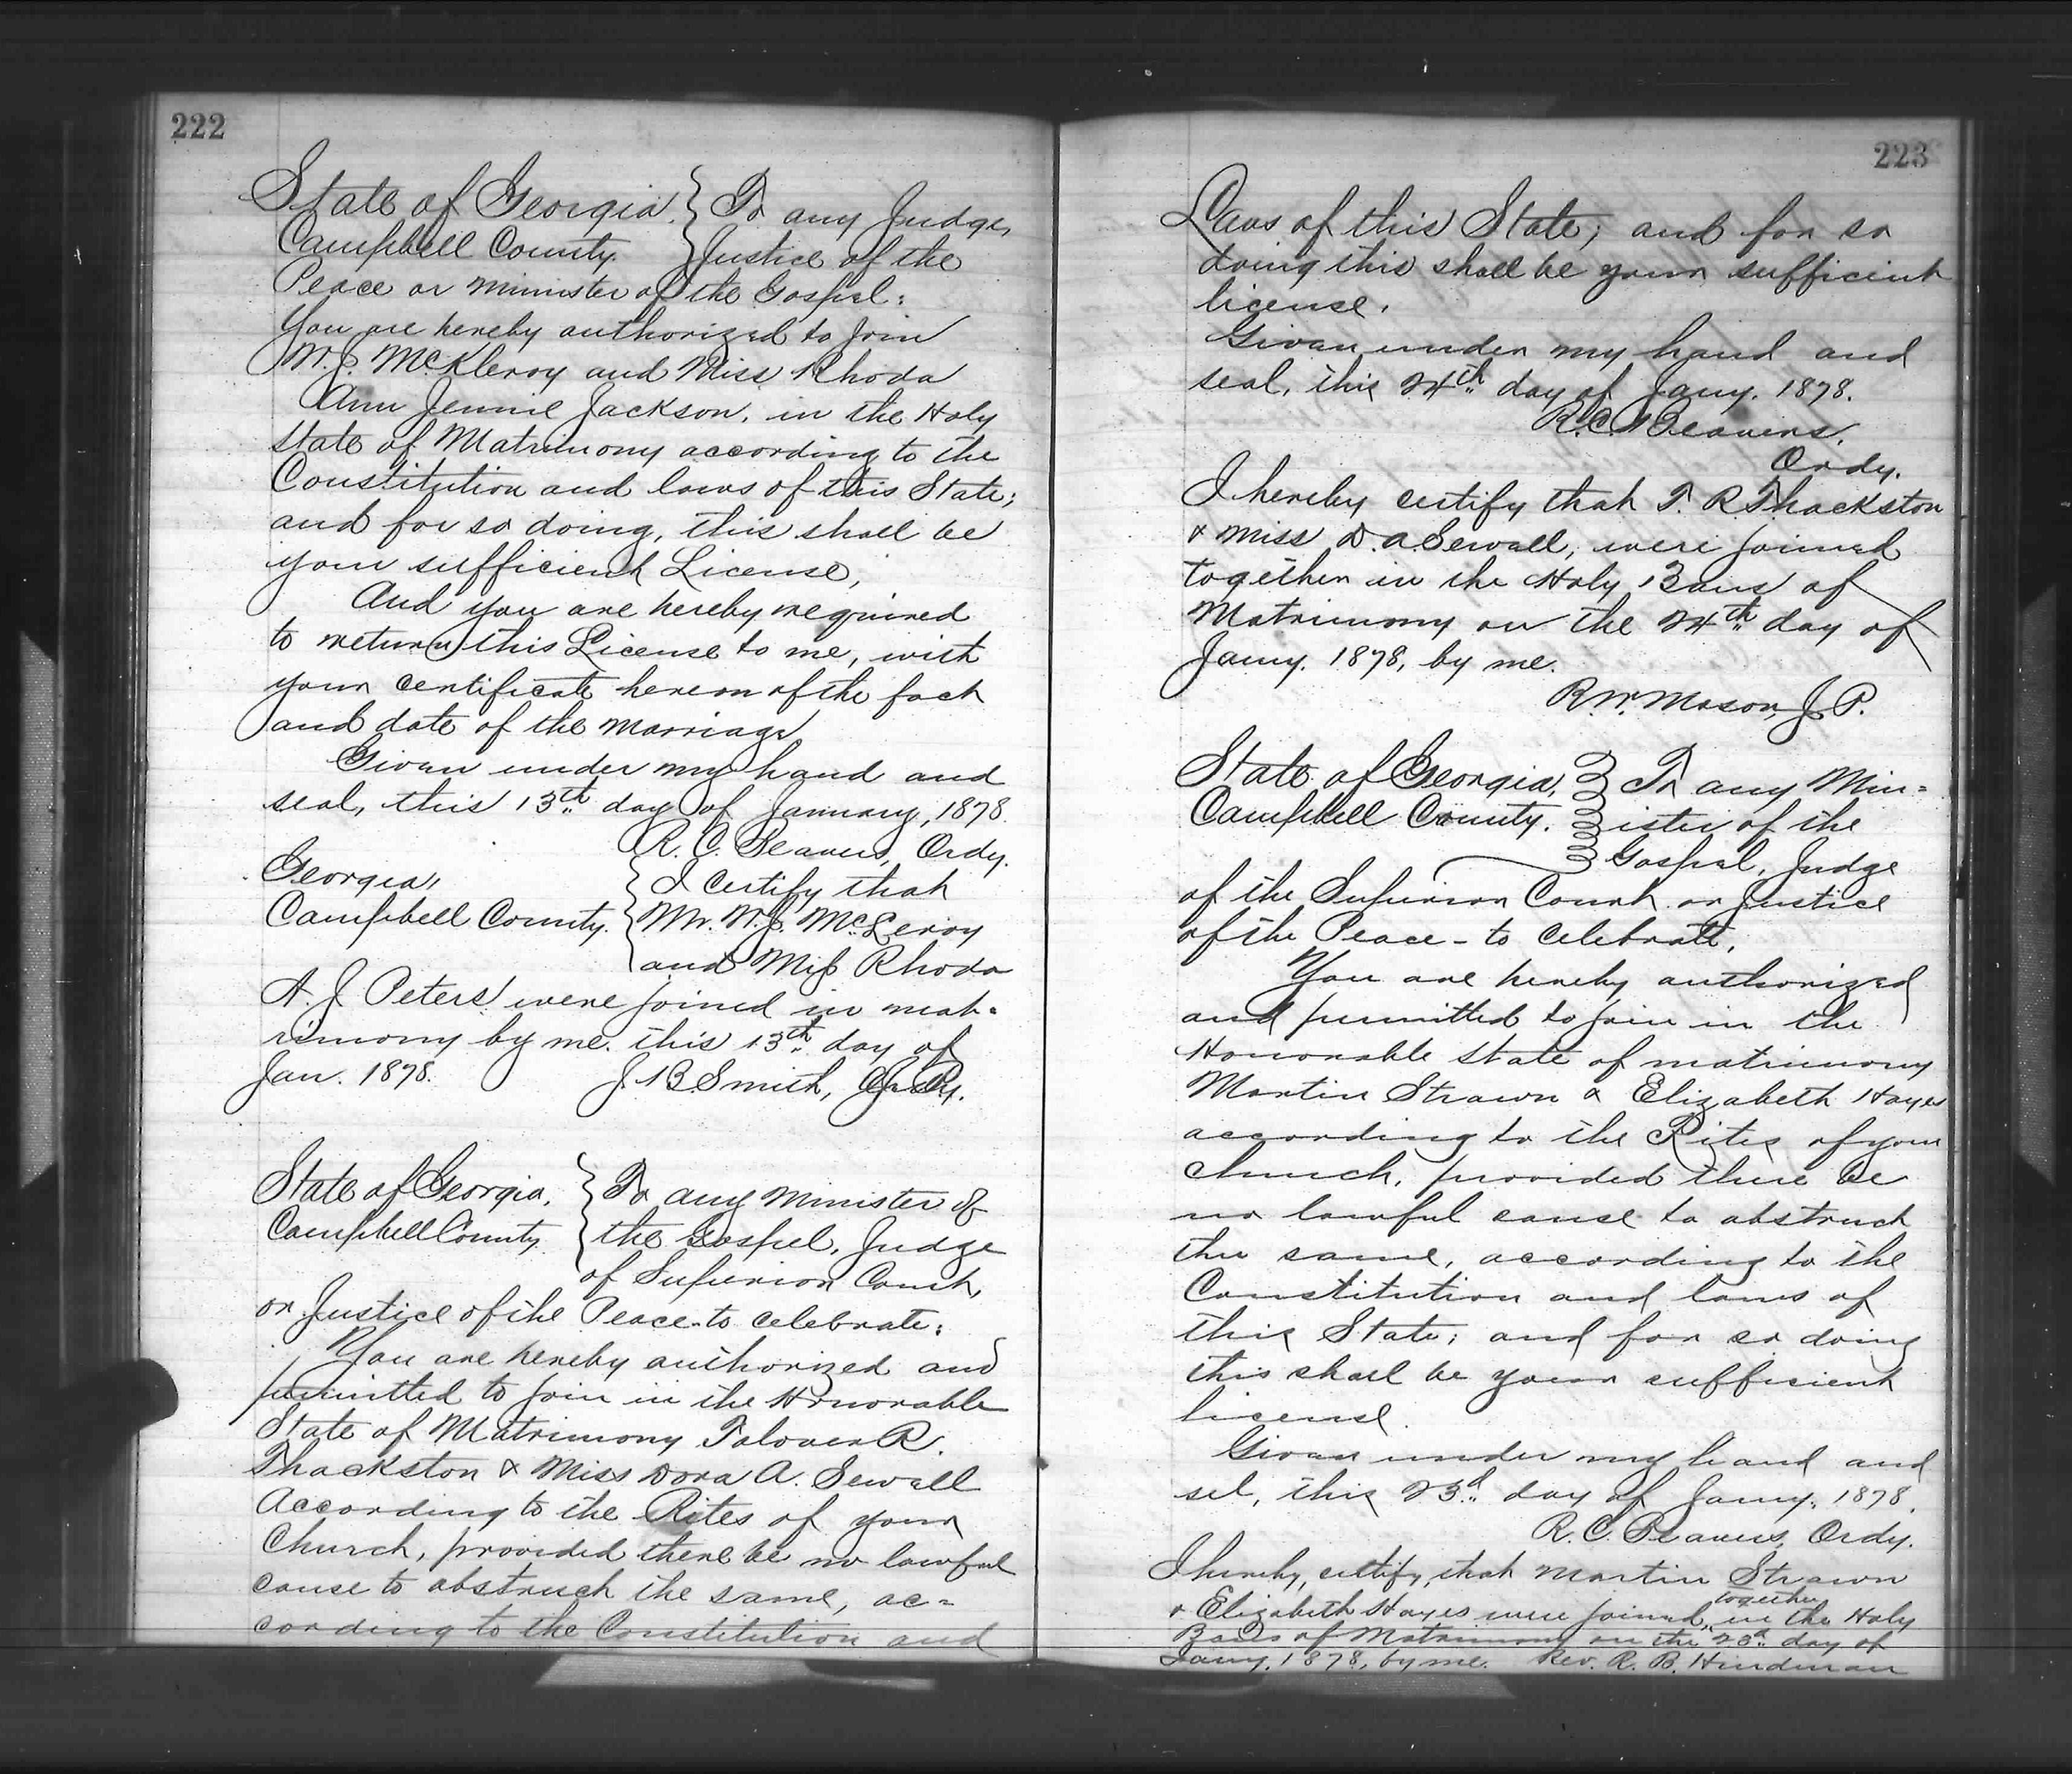 222
State of Georgia, } To any Judge,
Campbell County. } Justice of the
Peace or minister of the Gospel:
You are hereby authorized to join
W. J. McKleroy and Miss Rhoda
Ann Jennie Jackson, in the Holy
state of Matrimony according to the
Constitution and laws of this State;
and for so doing, this shall be
your sufficient License,
And you are hereby required
to return this License to me, with
your certificate hereon of the fact
and date of the marriage.
Given under my hand and
seal, this 13th day of January, 1878.
R. C. Beavers, Ordy.
Georgia, } I certify that
Campbell County. } Mr. W. J. McLeroy
and Miss Rhoda
A. J. Peters were joined in mat-
rimony by me. this 13th day of
Jan. 1878. J. B. Smith,
State of Georgia, } To any minister of
Campbell County } the Gospel, Judge
of Superior Court,
or Justice of the Peace to celebrate:
You are hereby authorized and
permitted to join in the Honorable
State of Matrimony Talover R.
Thackston & Miss Dora A. Sewell
According to the Rites of your
Church, provided there be no lawful
cause to obstruct the same, ac-
cording to the Constitution and
223
Laws of this State; and for so
doing this shall be your sufficient
license.
Given under my hand and
seal, this 24th day of Jany. 1878.
R. C. Beavers.
Ordy.
I hereby certify that T. R. Thackston
& Miss D. A. Sewell, were joined
together in the Holy Bans of
Matrimony on the 24th day of
Jany. 1878, by me.
R. W. Mason, J. P.
State of Georgia, } To any Min-
Campbell County. } ister of the
Gospel, Judge
of the Superior Court or Justice
of the Peace - to celebrate,
You are hereby authorized
and permitted to join in the
Honorable state of matrimony
Martin Strawn & Elizabeth Hayes
according to the Rites of your
church, provided there be
no lawful cause to obstruct
the same, according to the
Constitution and laws of
this State; and for so doing
this shall be your sufficient
license.
Given under my hand and
sel, this 23d day of Jany. 1878.
R. C. Beavers, Ordy.
I hereby, certify, that Martin Strawn
& Elizabeth Hayes were joined, together in the Holy
Bans of Matrimony on the 23d day of
Jany. 1878, by me. Rev. R. B. Hindman